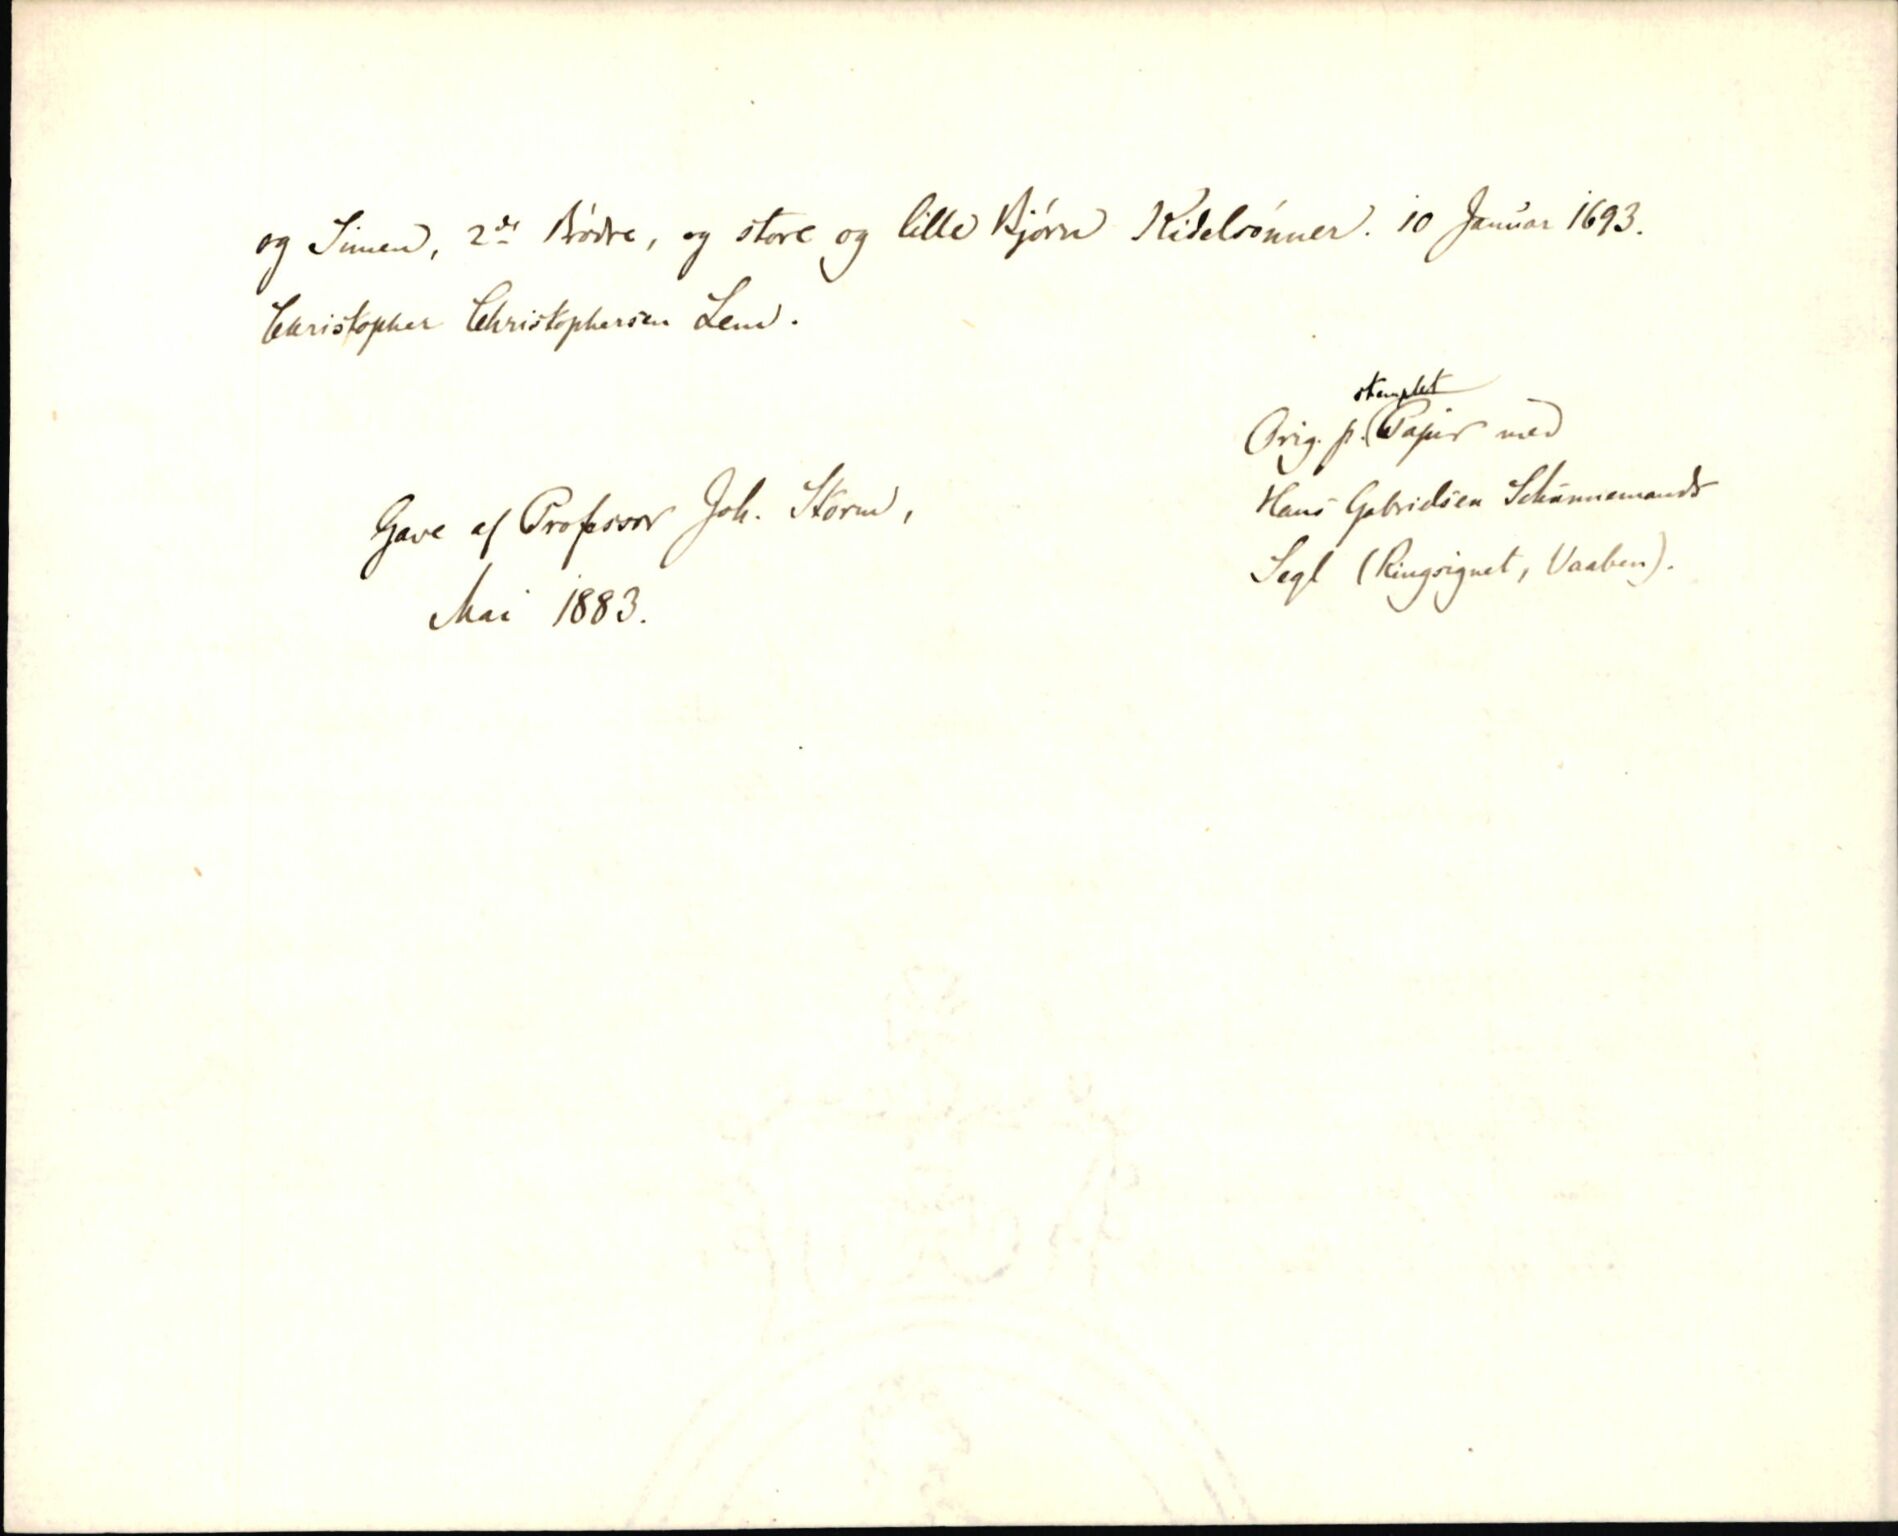 og Simen, 2de Brødre, og store og lille Bjørn Kidelsønner. 10 Januar 1693.
Christopher Christophersen Lem.
stemplet
Orig. p. Papir med
Hans Gabrielsen Schünnemands
Segl (Ringsignet, Vaaben).
Gave af Professor Joh. Storm,
Mai 1883.